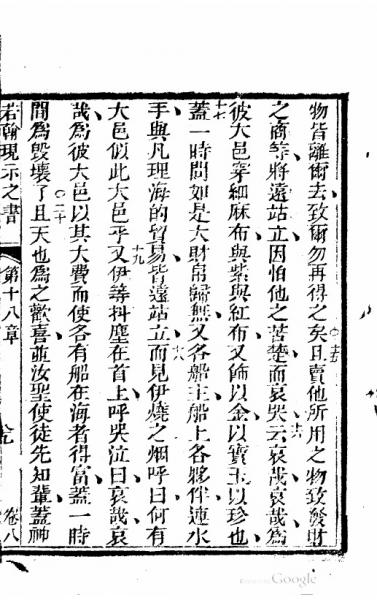 物皆離爾去致爾勿再得之矣○十五且賣他所用之物致發財
之商等將遠站立因怕他之苦楚而哀哭○十六云哀哉哀哉爲
彼大邑穿細麻布與紫與紅布又飾以金以寶玉以珍也
十七蓋一時間如是大財帛歸無又各船主船上各夥伴連水
手與凡理海的貿易皆遠站立○十八而見伊燒之烟呼曰何有
大邑似此大邑乎○十九又伊等抖塵在首上呼哭泣曰哀哉哀
哉爲彼大邑以其大費而使各有船在海者得富蓋一時
間爲毀壞了○二十且天也爲之歡喜並汝聖使徒先知輩蓋神
若翰現示之書 第十八章 卷八
Google